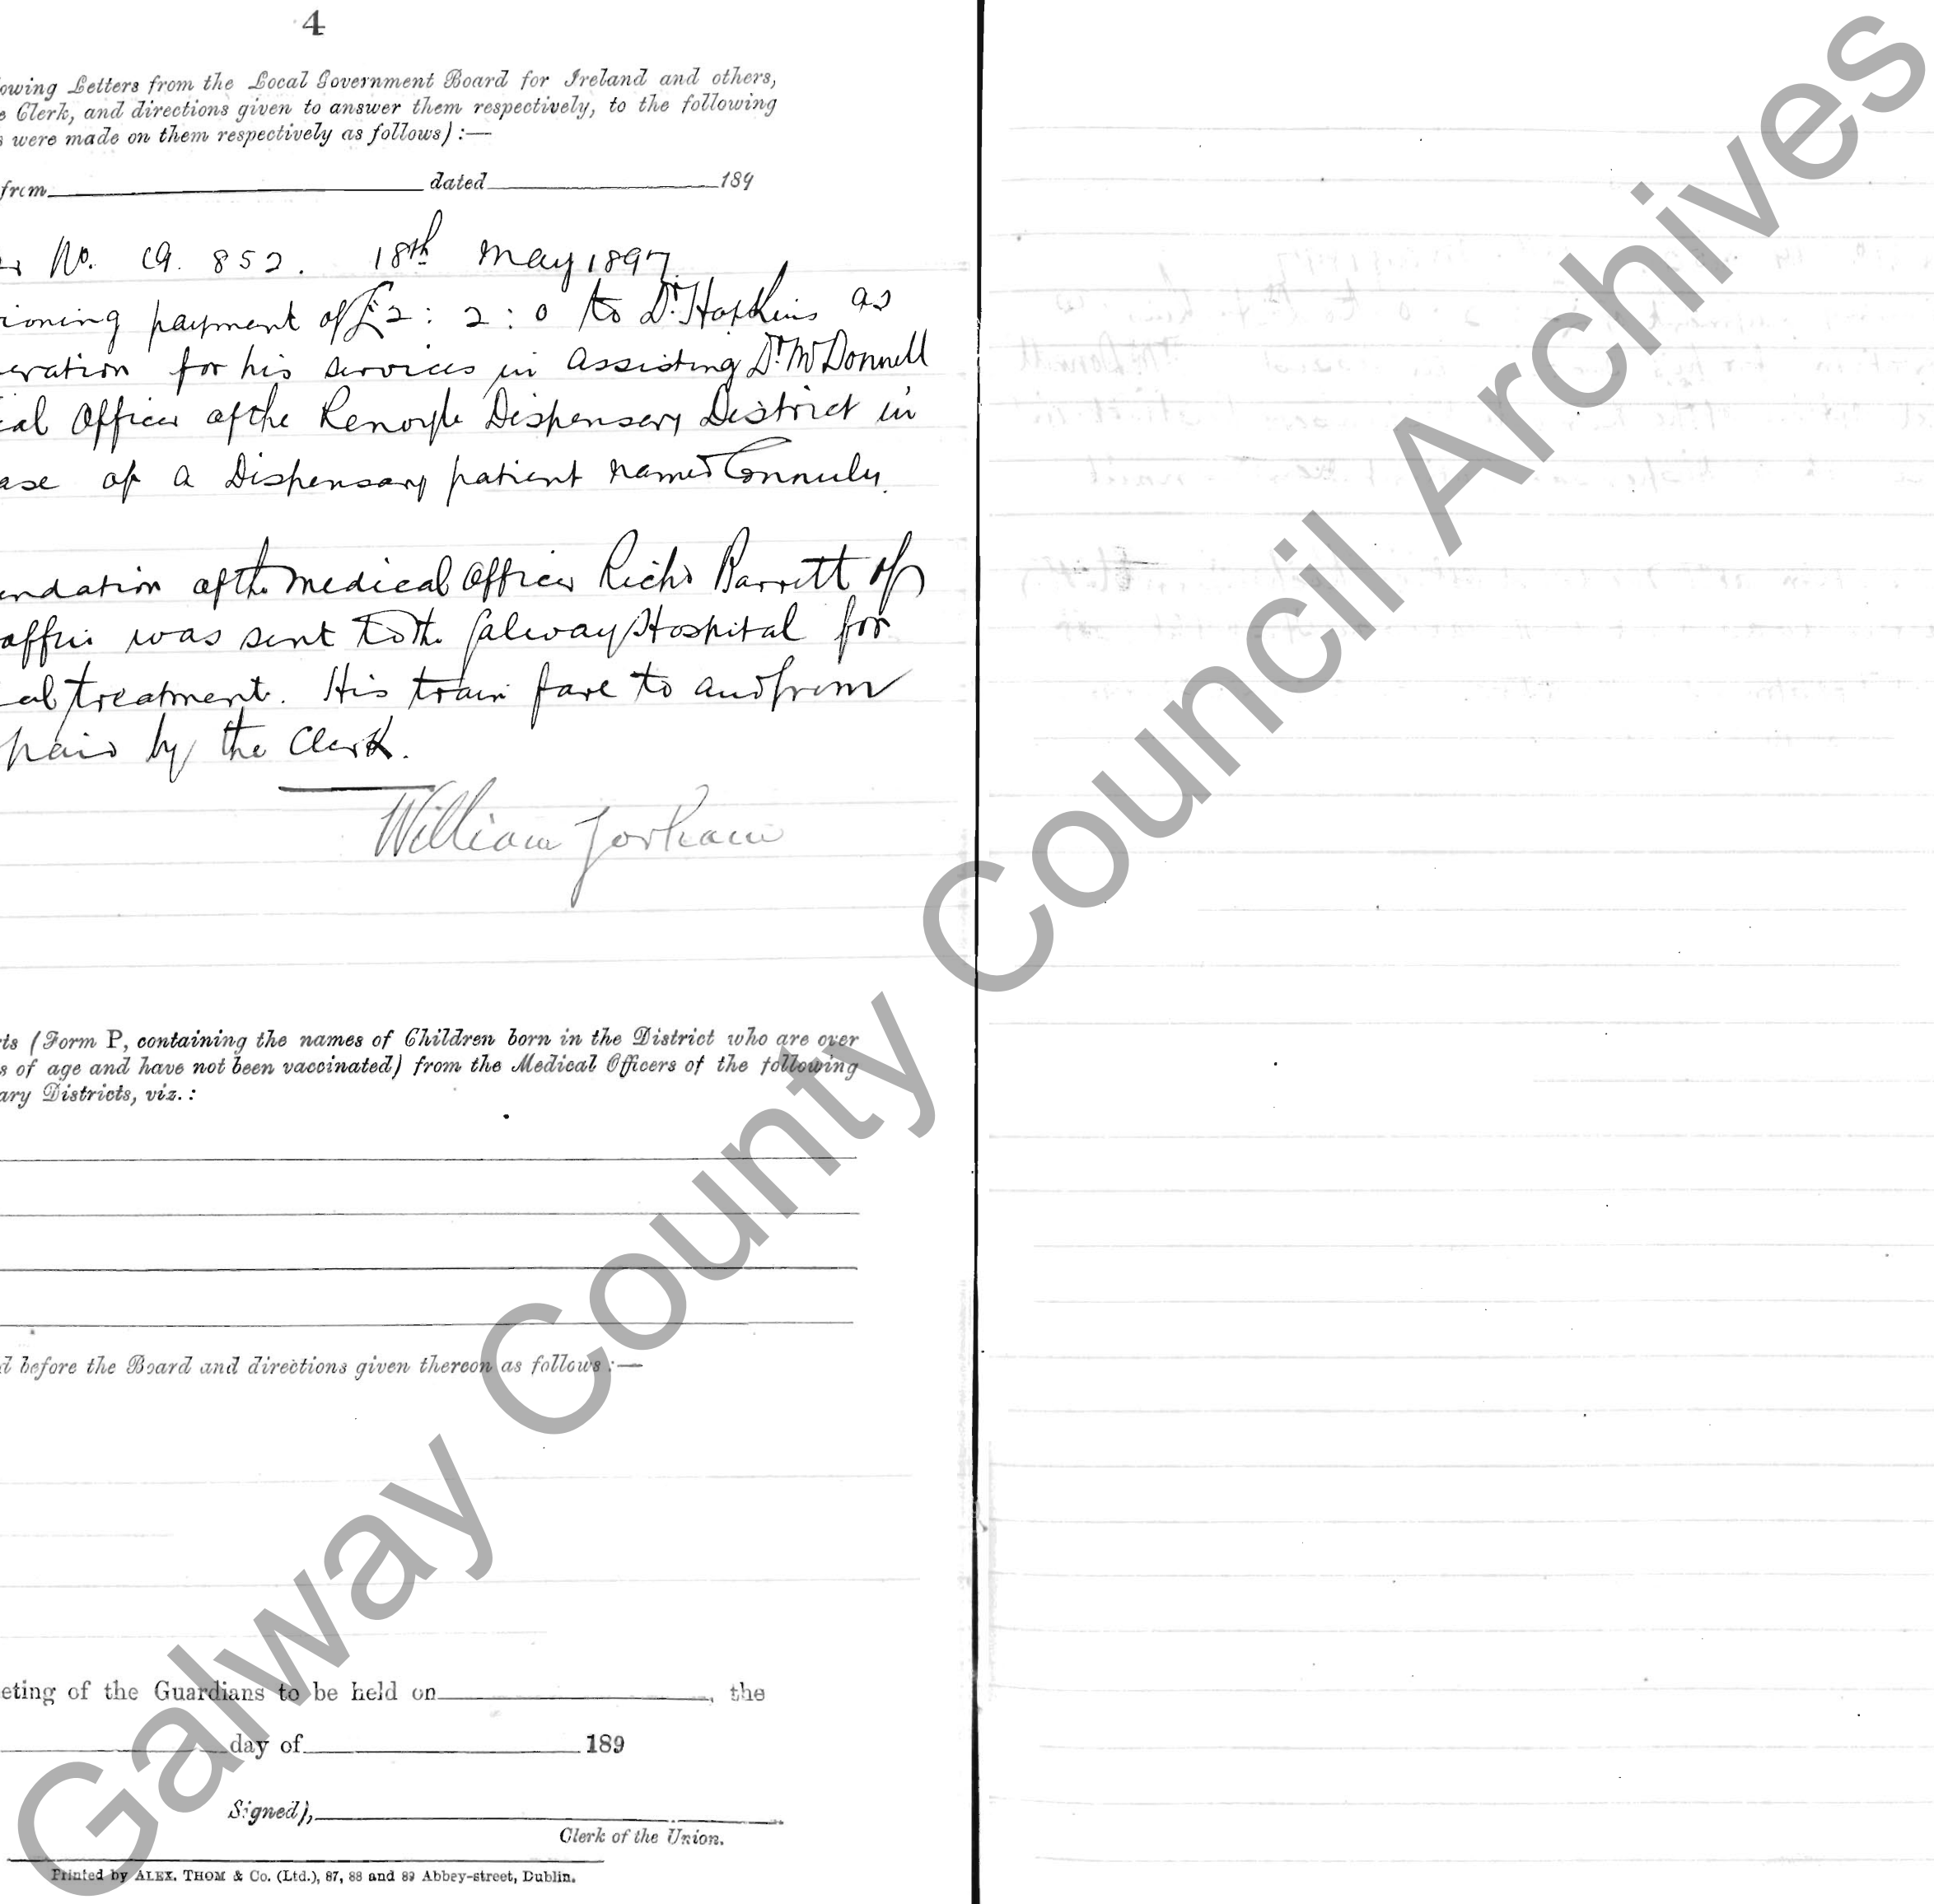 4
owing Letters from the Local Government Board for Ireland and others,
e Clerk, and directions given to answer them respectively, to the following
s were made on them respectively as follows) :—
from dated 189
No. 19. 852. 18th May 1897.
ioning payment of £2 : 2 : 0 to Dr. Hopkins as
eration for his services in assisting Dr. McDonnell
cal Officer of the Renvyle Dispensary District in
ase of a Dispensary patient named Conneely.
endation of the Medical Officer Richd Barrett of
affin was sent to the Galway Hospital for
al treatment. His train fare to and from
paid by the Clerk.
William Gorham
ts (Form P, containing the names of Children born in the District who are over
s of age and have not been vaccinated) from the Medical Officers of the following
ary Districts, viz. :
d before the Board and directions given thereon as follows :—
eting of the Guardians to be held on , the
day of 189
Signed),
Clerk of the Union.
Printed by ALEX. THOM & Co. (Ltd.), 87, 88 and 89 Abbey-street, Dublin.
Galway County Council Archives